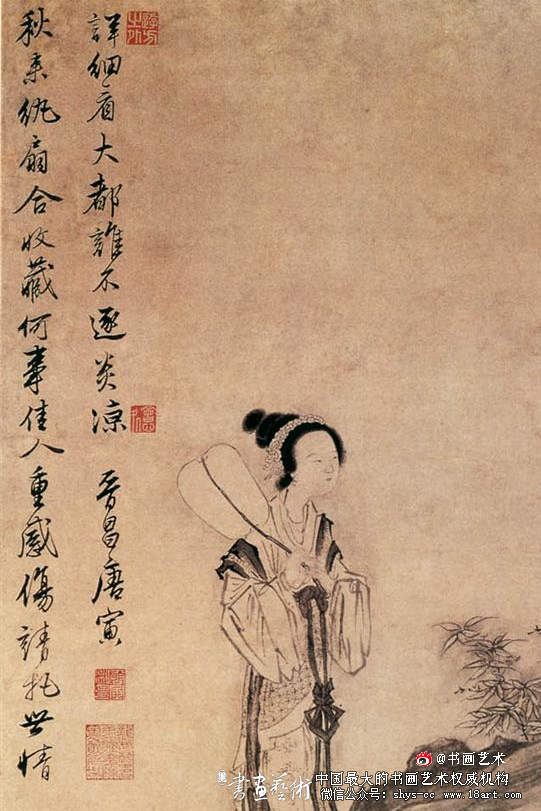 秋来紈扇合收藏何事佳人重感傷請托世情
詳細看大都誰不逐炎凉 晋昌唐寅
@书画艺术
書畫藝術 中国最大的书画艺术权威机构
微信公众号：shys-cc www.18art.com